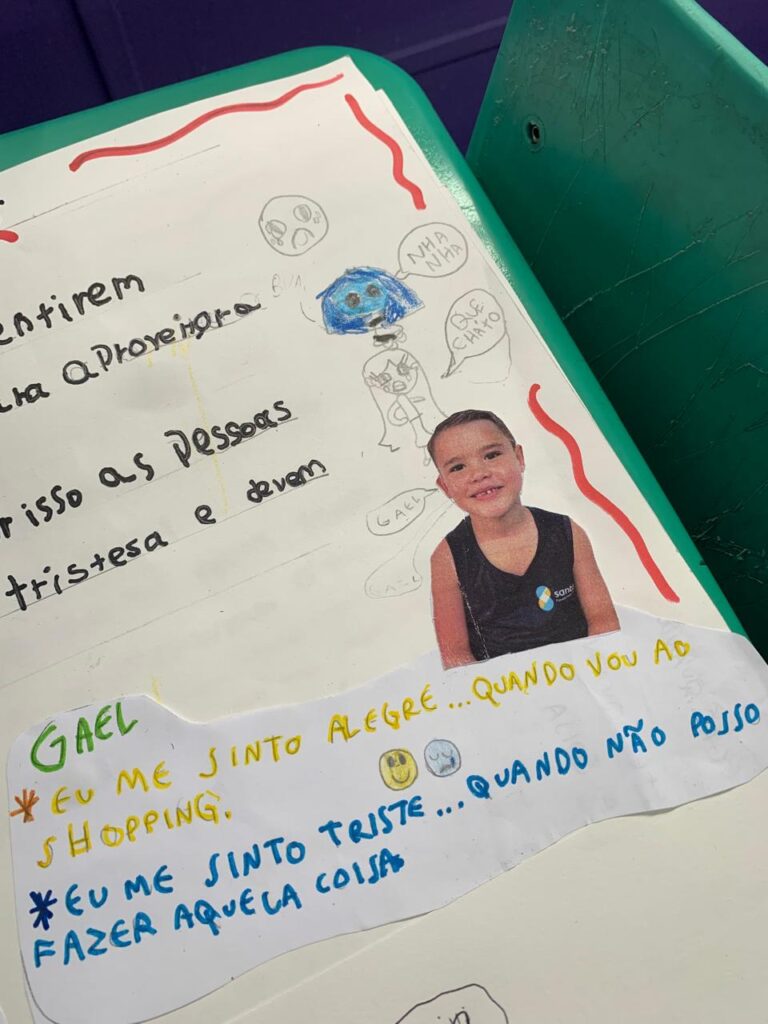 NHA
NHA
BUA
entirem
aproveitara
QUE
CHATO
isso as pessoas
tristesa e devem
GAEL
GAEL
sano
GAEL
* EU ME SINTO ALEGRE... QUANDO VOU AO
SHOPPING.
* EU ME SINTO TRISTE... QUANDO NÃO POSSO
FAZER AQUELA COISA